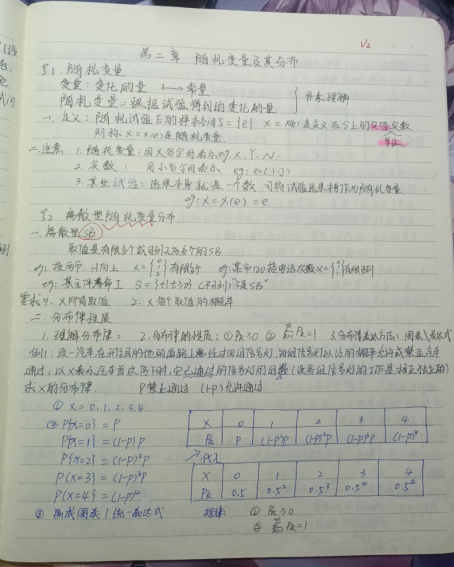 1/2
第二章 随机变量及其分布
§1 随机变量
变量:变化的量 ←→ 常量
随机变量:根据试验得到的变化的量
一、定义:随机试验E的样本空间S={e} X=X(e)是定义在S上的实值函数
则称X=X(e)是随机变量
单值
二、注意 1. 随机变量:用大写字母表示 eg X、Y、N
2. 实数:用小写字母表示
3. 某些试验:结果本身就是一个数 可将试验结果作为随机变量
eg: X=X(e)=e
§2 离散型随机变量分布
一、离散型SB
取值是有限多个或可列无限多个的SB
eg: 投两币, H向上 有限个 eg: 某市120接电话次数
eg: 某元件寿命T
要求: 1. X所有取值 2. X每个取值的概率
二、分布律性质
1. 理解分布律: 2. 分布律的性质: ① Pk≥0 ② ΣPk=1 3. 分布律表达方法: 图表/表达式
例1: 设一汽车在开往目的地的道路上需经过四组信号灯, 每组信号灯以1/2的概率允许或禁止汽车
通过, 以X表示汽车首次停下时, 它已通过的信号灯的组数(设各组信号灯的工作是相互独立的)
求X的分布律 P禁止通过 (1-p)允许通过
① X=0,1,2,3,4
② P{X=0}=P
P{X=1}=(1-P)P
P{X=2}=(1-P)²P
P{X=3}=(1-P)³P
P{X=4}=(1-P)⁴
③ 画成图表/统一表达式
X 0 1 2 3 4
Pk P (1-P)P (1-P)²P (1-P)³P (1-P)⁴
X 0 1 2 3 4
Pk 0.5 0.5² 0.5³ 0.5⁴ 0.5⁴
规律: ① Pk≥0
② ΣPk=1